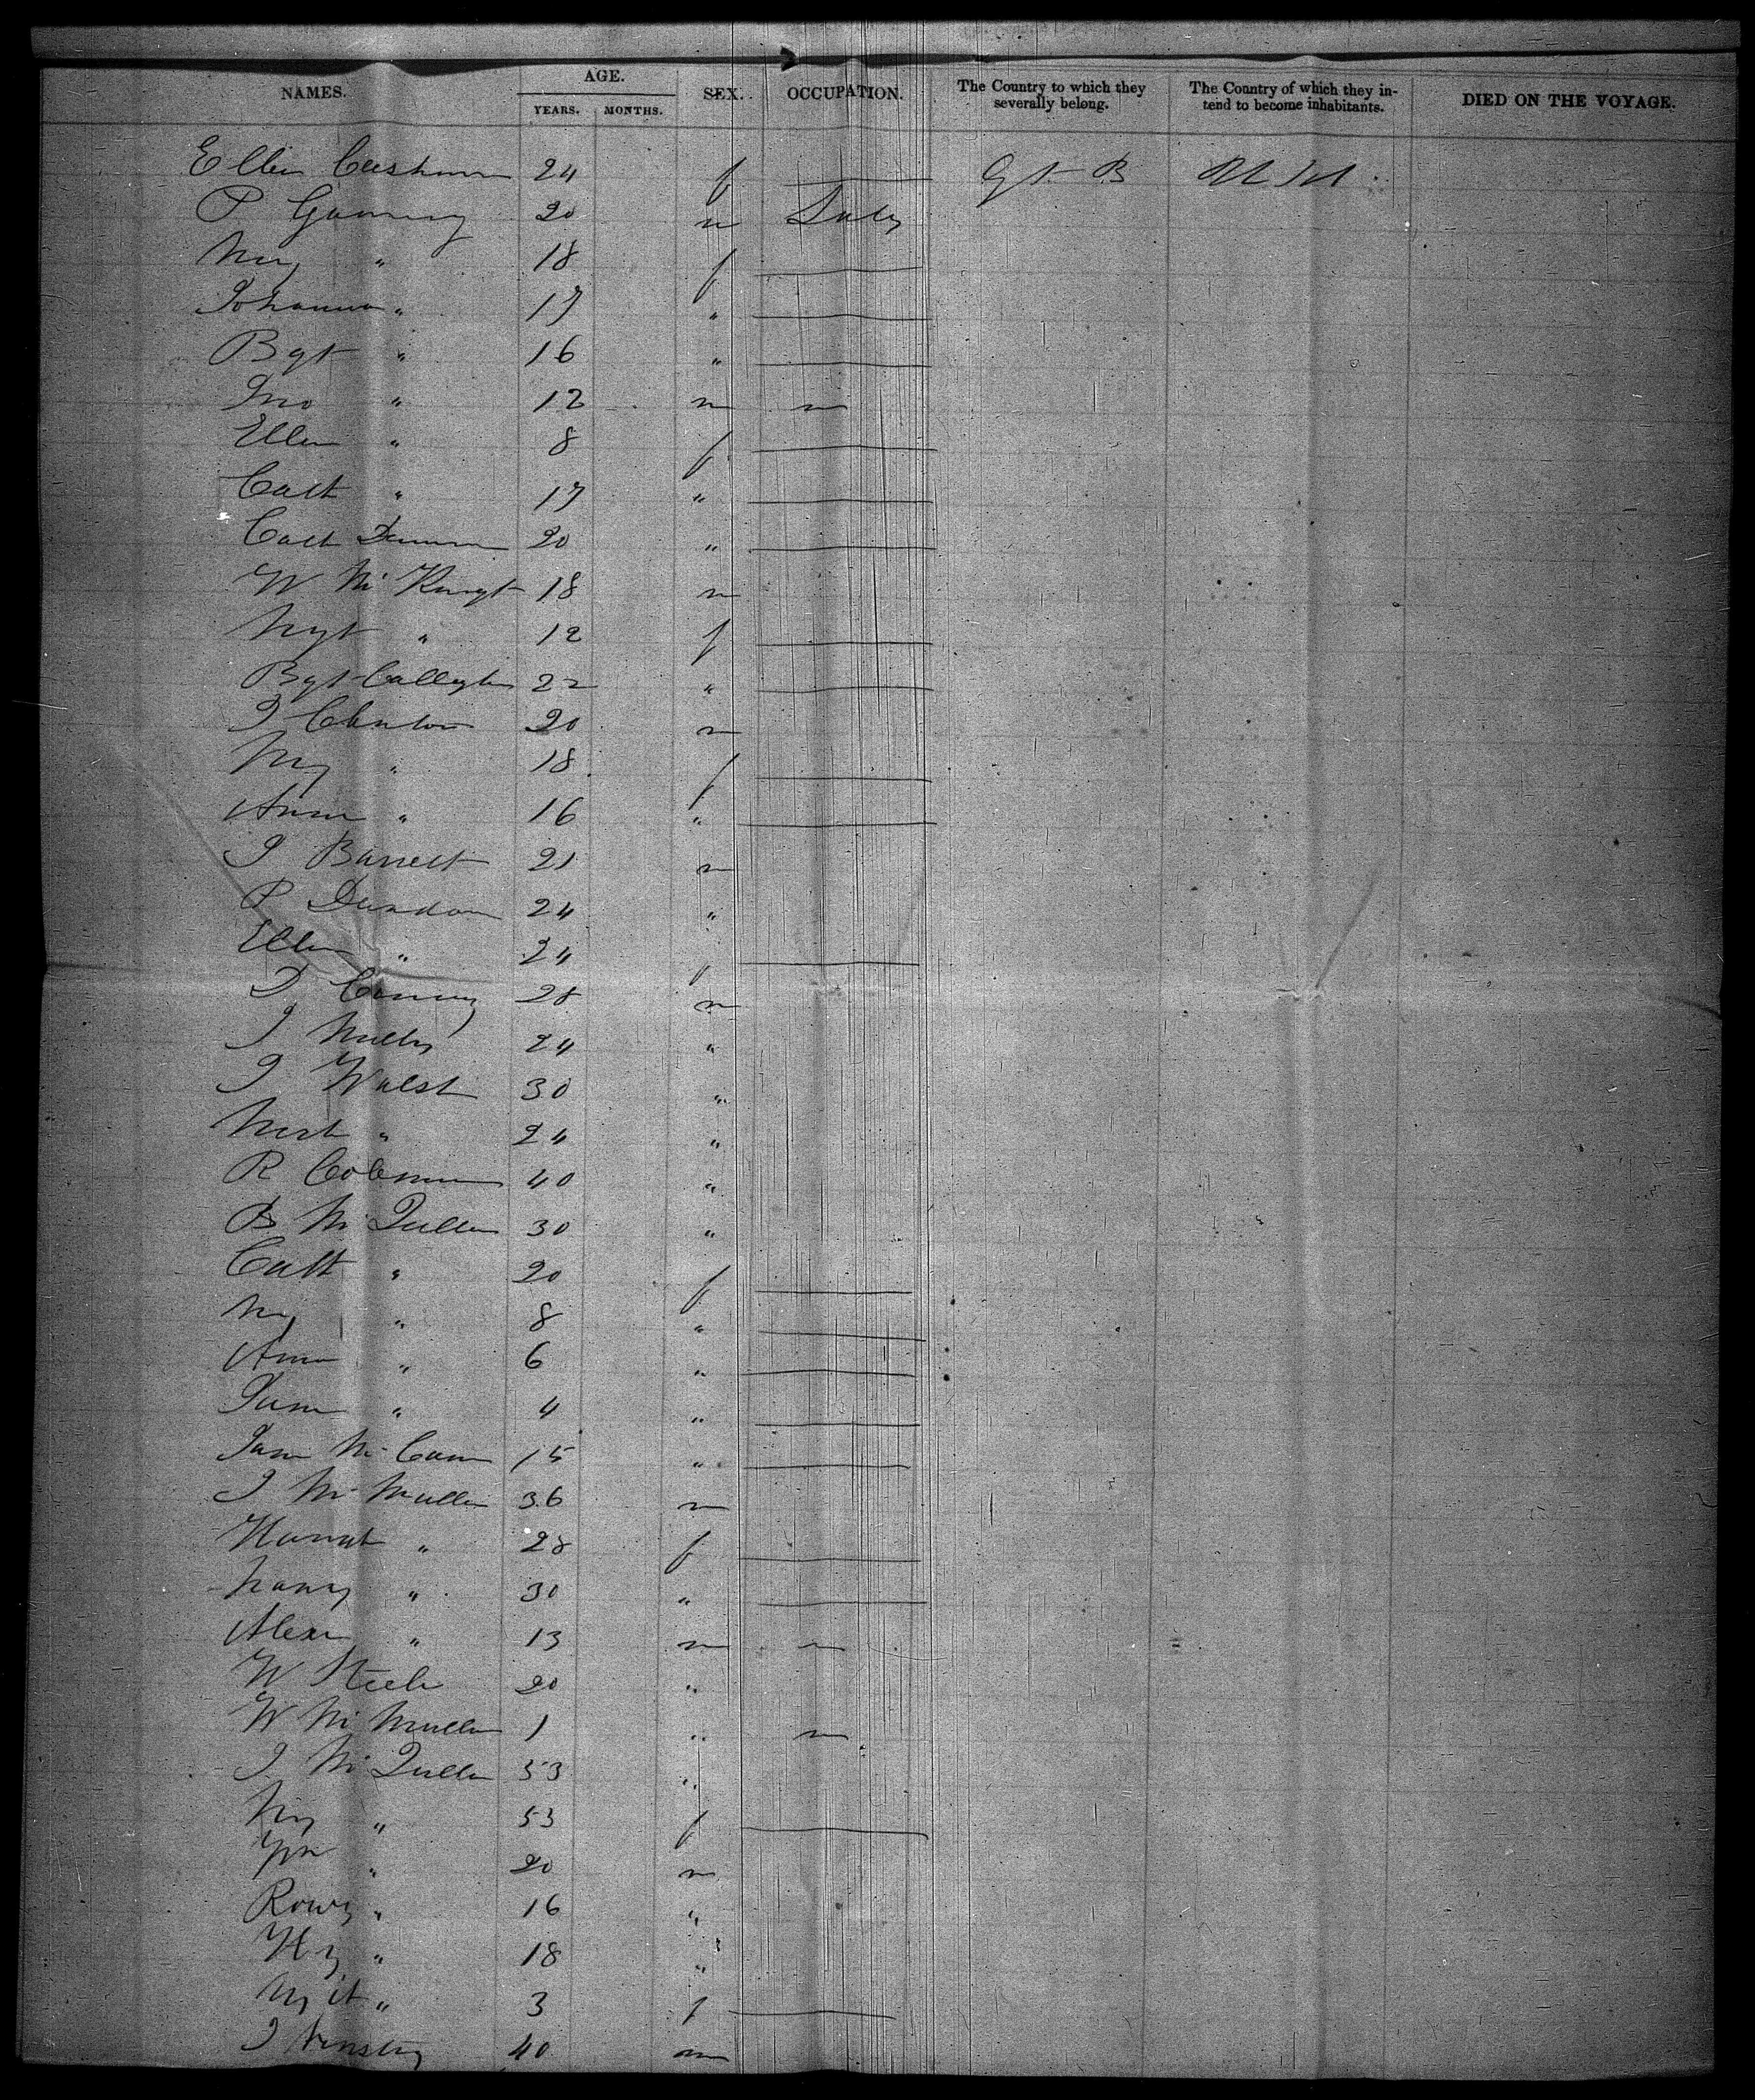 NAMES. AGE. YEARS. MONTHS. SEX. OCCUPATION. The Country to which they severally belong. The Country of which they intend to become inhabitants. DIED ON THE VOYAGE.
Ellen Cushman 24 f Gt. B
P 20 m
" 18 f
Johanna " 17 "
Bgt " 16 "
Jno " 12 m
Ellen " 8 f
Cath " 17 "
Cath 20 "
W Mc Knight 18 m
Mgt " 12 f
Bgt 22 "
J Clinton 20 m
My " 18 f
Anne " 16 "
J Barrett 21 m
P Dundon 24 "
Ellen " 24 f
D 28 m
J 24 "
J Walsh 30 "
" 24 "
R Coleman 40 "
B Mc Quillen 30 "
Cath " 20 f
My " 8 "
Anne " 6 "
Jane " 4 "
Jane Mc Cann 15 "
J Mc Mullen 36 m
Hannah " 28 f
Nancy " 30 "
Alexr " 13 m
W Steele 20 "
W Mc Mullen 1 "
J Mc Quillen 53 "
My " 53 f
Wm " 20 m
" 16 "
Hy " 18 "
" 3 f
J 40 m